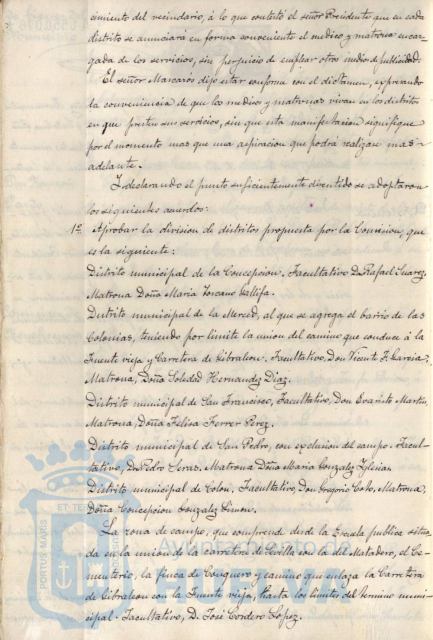 cimiento del vecindario, á lo que contestó el señor Presidente que en cada
distrito se anunciará en forma conveniente el medico y matrona encar-
gada de los servicios, sin perjuicio de emplear otros medios de publicidad.
El señor Mascarós dijo estar conforme con el dictamen, expresando
la conveniencia de que los medicos y matronas vivan en los distritos
en que presten sus servicios, sin que esta manifestacion signifique
por el momento mas que una aspiracion que podrá realizarse mas
adelante.
Y declarando el punto suficientemente discutido se adoptaron
los siguientes acuerdos:
1º Aprobar la division de distritos propuesta por la Comision, que
es la siguiente:
Distrito municipal de la Concepcion, Facultativo D. Rafael Suarez,
Matrona Doña Maria Toscano
Distrito municipal de la Merced, al que se agrega el barrio de las
Colonias, teniendo por limite la union del camino que conduce á la
Fuente vieja y Carretera de Gibraleon. Facultativo, Don Vicente F. Garcia,
Matrona, Doña Soledad Hernandez Diaz.
Distrito municipal de San Francisco, Facultativo, Don Evaristo Martin,
Matrona, Doña Felisa Ferrer Perez.
Distrito municipal de San Pedro, con exclusion del campo. Facul-
tativo, Dn Pedro Seras. Matrona Doña Maria Gonzalez Iglesias.
Distrito municipal de Colon, Facultativo, Don Gregorio Coto, Matrona,
Doña Concepcion Gonzalez Limon.
La zona de campo, que comprende desde la Escuela publica situa-
da en la union de la carretera de Sevilla con la del Matadero, el Ce-
menterio, la finca de Conquero y camino que enlaza la Carretera
de Gibraleon con la Fuente vieja, hasta los limites del termino muni-
cipal. Facultativo, D. José Cordero López.
PORTUS MARIS ET TE